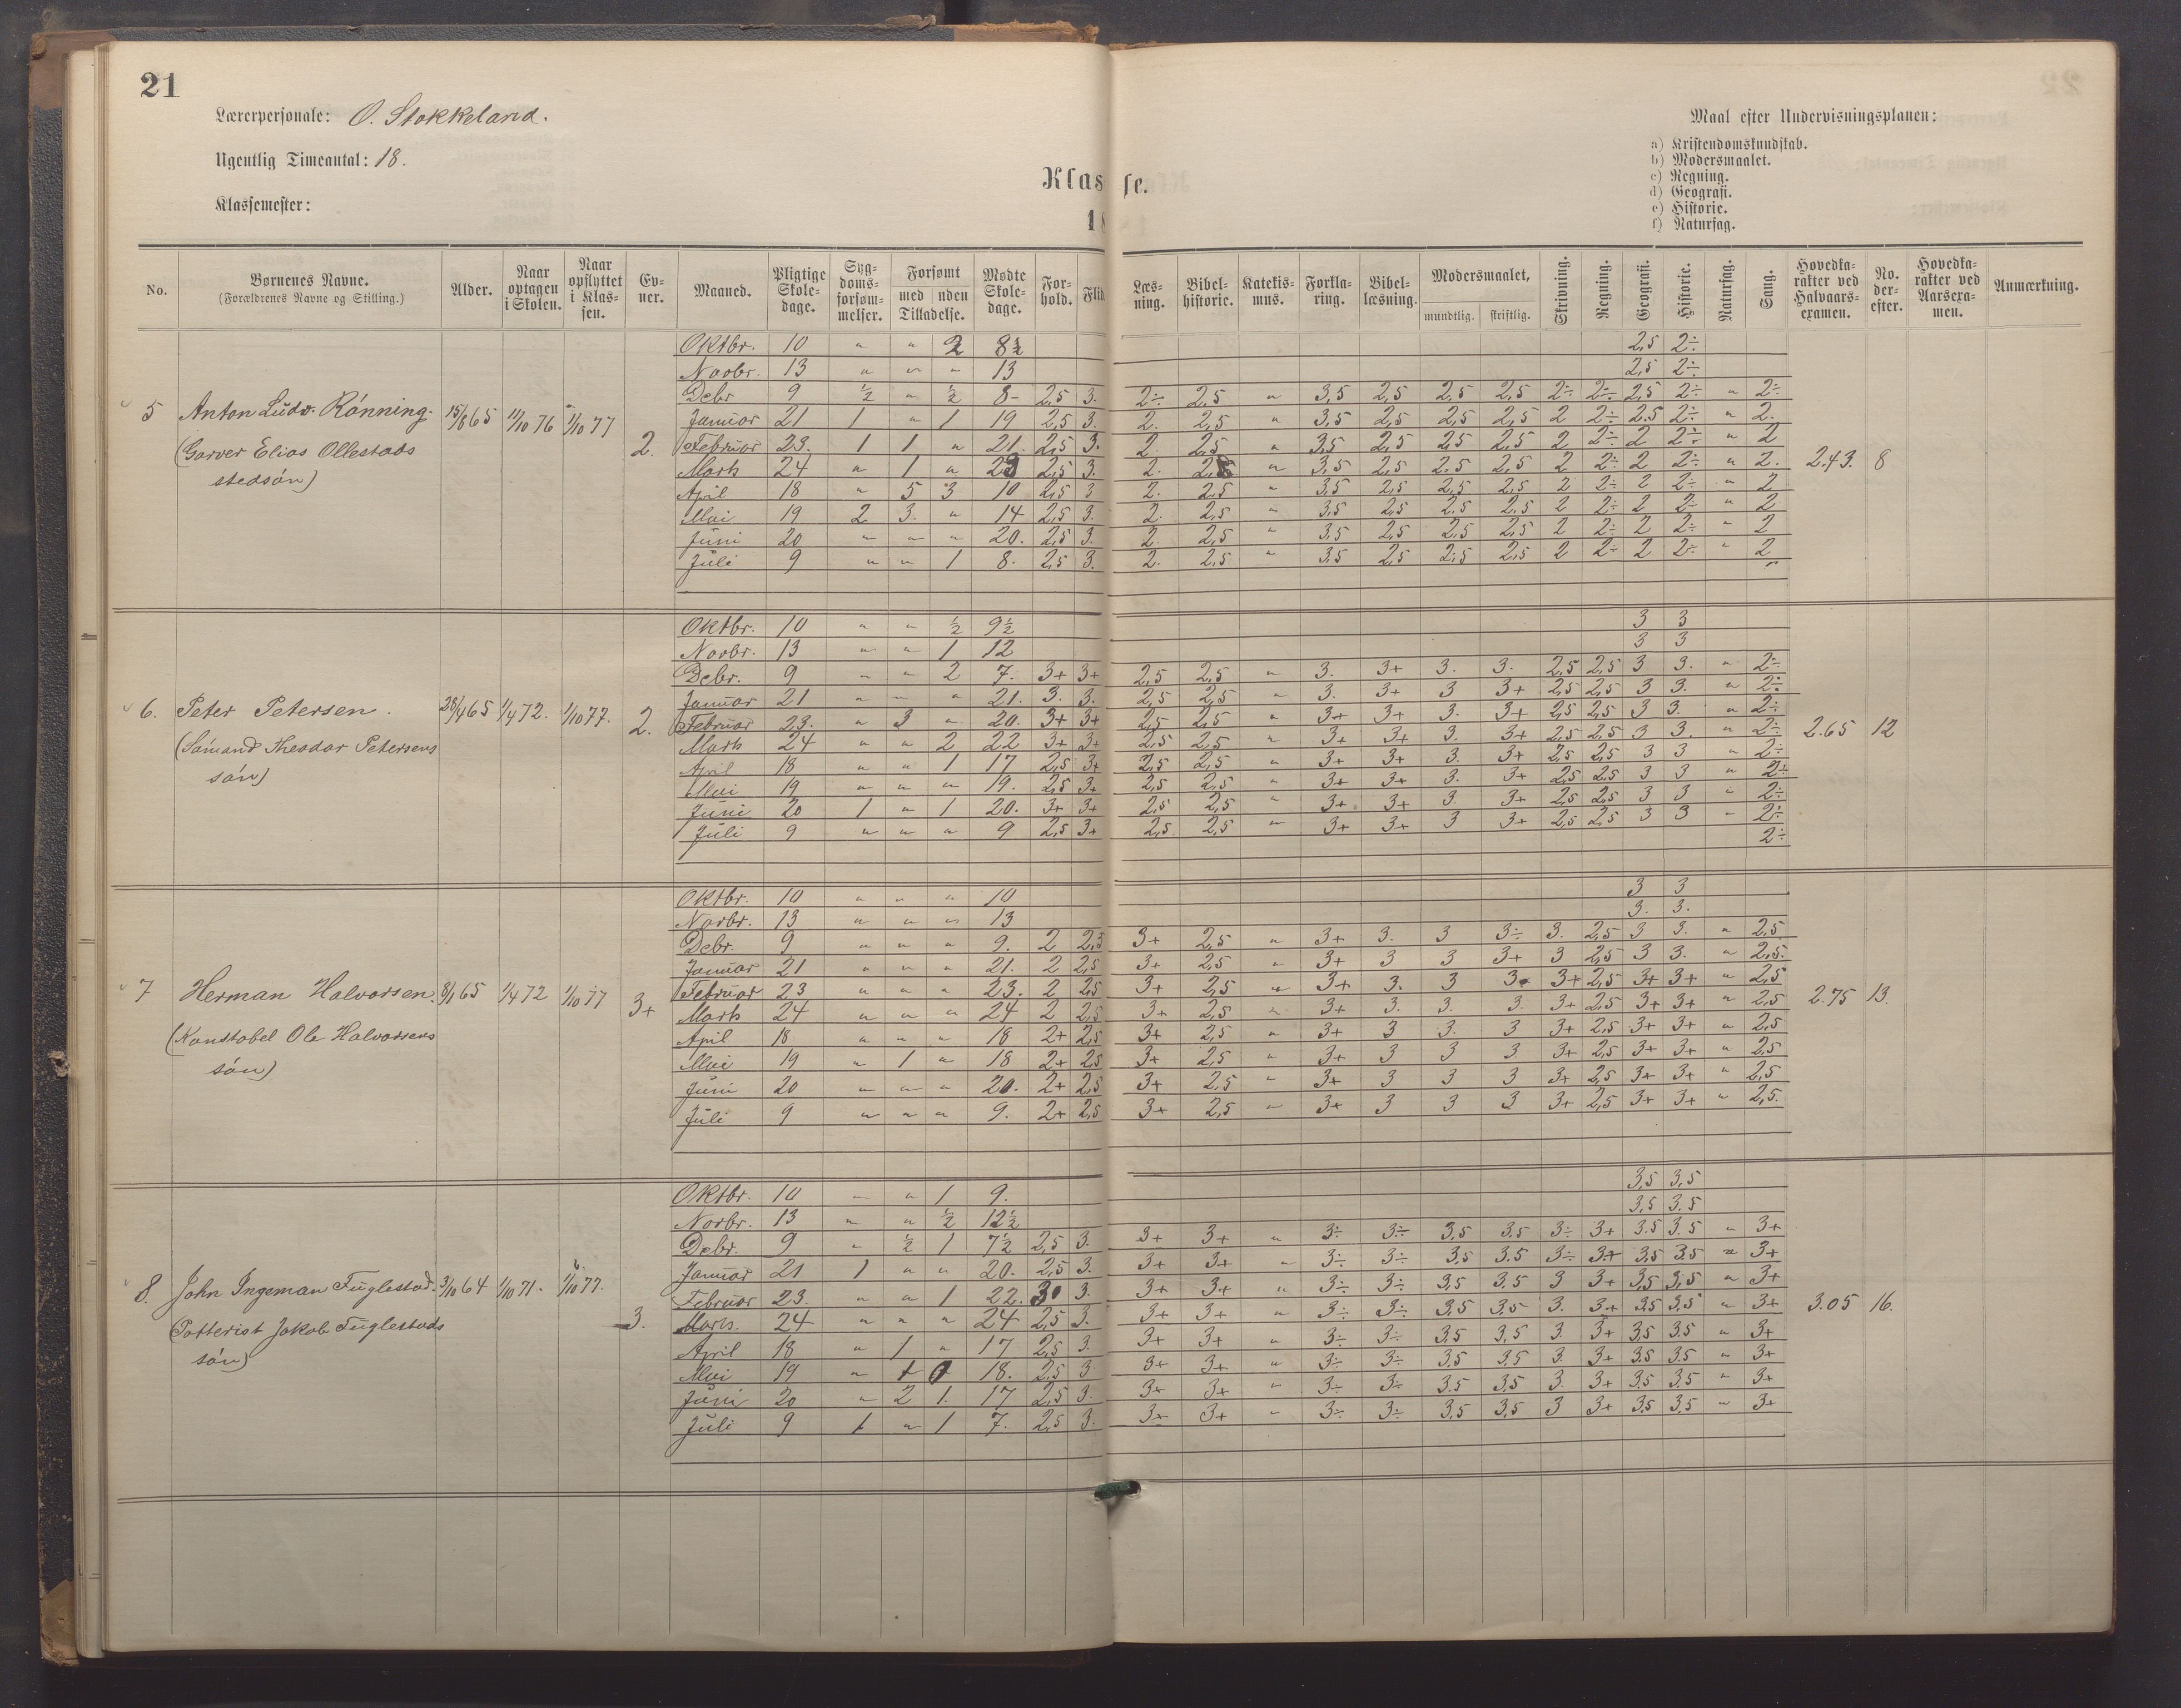 21
Lærerpersonale: O. Stokkeland.
Ugentlig Timeantal: 18.
Klassemester:
Klasse.
18
Maal efter Undervisningsplanen:
a) Kristendomskundskab.
b) Modersmaalet.
c) Regning.
d) Geografi.
e) Historie.
f) Naturfag.
No. Børnenes Navne. (Forældrenes Navne og Stilling.) Alder. Naar optagen i Skolen. Naar opflyttet i Klassen. Evner. Maaned. Pligtige Skoledage. Sygdomsforsømmelser. Forsømt med uden Tilladelse. Mødte Skoledage. Forhold. Flid. Læsning. Bibelhistorie. Katekismus. Forklaring. Bibellæsning. Modersmaalet, mundtlig. skriftlig. Skrivning. Regning. Geografi. Historie. Naturfag. Sang. Hovedkarakter ved Halvaarsexamen. No. derefter. Hovedkarakter ved Aarsexamen. Anmærkning.
5 Anton Ludv. Rönning. 15/8 65 1/10 76 1/10 77 2. 2.43. 8
(Garver Elias Ollestads
stedsön)
Oktbr. 10 " " 2 8½ 2,5 2÷
Novbr. 13 " " " 13 2,5 2÷
Debr 9 ½ " ½ 8- 2,5 3. 2÷ 2,5 " 3,5 2,5 2,5 2,5 2÷ 2÷ 2,5 2÷ " 2÷
Januar 21 1 " 1 19 2,5 3. 2. 2,5 " 3,5 2,5 2,5 2,5 2 2÷ 2.5 2÷ " 2.
Februar 23. 1 1 " 21. 2,5 3. 2. 2,5 " 3,5 2,5 2,5 2,5 2 2÷ 2 2÷ " 2
Marts 24 " 1 " 23 2,5 3. 2. 2,5 " 3,5 2,5 2,5 2,5 2 2÷ 2 2÷ " 2.
April 18 " 5 3 10 2,5 3 2. 2,5 " 3,5 2,5 2,5 2,5 2 2÷ 2 2÷ " 2
Mai 19 2 3. " 14 2,5 3. 2. 2,5 " 3,5 2,5 2,5 2,5 2 2÷ 2 2÷ " 2
Juni 20 " " " 20. 2,5 3. 2. 2,5 " 3,5 2,5 2,5 2,5 2 2÷ 2 2÷ " 2
Juli 9 " " 1 8. 2,5 3. 2. 2,5 " 3,5 2,5 2,5 2,5 2 2÷ 2 2÷ " 2
"
6. Peter Petersen. 28/4 65 1/4 72. 1/10 77. 2. 2.65 12
(Sömand Thesdor Petersens
sön)
Oktbr. 10 " " ½ 9½ 3 3
Novbr. 13 " " 1 12 3 3
Debr. 9 " " 2 7. 3+ 3+ 2,5 2,5 " 3. 3+ 3. 3. 2,5 2,5 3 3. " 2÷
Januar 21 " " " 21. 3. 3. 2,5 2,5 " 3. 3+ 3 3+ 2,5 2,5 3 3. " 2÷
Februar 23. " 3 " 20. 3+ 3+ 2,5 2,5 " 3+ 3+ 3. 3+ 2,5 2,5 3 3. " 2÷
Marts 24 " " 2 22 3+ 3+ 2,5 2,5 " 3+ 3+ 3. 3+ 2,5 2,5 3 3. " 2÷
April 18 " " 1 17 2,5 3+ 2,5 2,5 " 3+ 3+ 3. 3+ 2,5 2,5 3 3 " 2÷
Mai 19 " " " 19. 2,5 3+ 2,5 2,5 " 3+ 3+ 3. 3+ 2,5 2,5 3 3 " 2÷
Juni 20 1 " 1 20. 3+ 3+ 2,5 2,5 " 3+ 3+ 3 3+ 2,5 2,5 3 3 " 2÷
Juli 9 " " " 9 2,5 3+ 2,5 2,5 " 3+ 3+ 3 3+ 2,5 2,5 3 3 " 2÷
2÷
7 Herman Halvorsen. 8/1 65 1/4 72 1/10 77 3+ 2.75 13.
(Konstabel Ole Halvorsens
sön)
Oktbr. 10 " " " 10 3 3
Novbr. 13 " " " 13 3. 3.
Debr. 9 " " " 9. 2 2,5 3+ 2,5 " 3+ 3. 3 3÷ 3. 2,5 3 3. " 2,5
Januar 21 " " " 21. 2 2,5 3+ 2,5 " 3+ 3 3 3+ 3 2,5 3 3. " 2,5.
Februar 23 " " " 23. 2 2,5 3+ 2,5 " 3+ 3. 3 3. 3+ 2,5 3+ 3+ " 2,5
Marts 24 " " " 24 2 2,5 3+ 2,5 " 3+ 3. 3. 3. 3+ 2,5 3+ 3+ " 2,5
April 18 " " " 18 2+ 2,5 3+ 2,5 " 3+ 3 3. 3 3+ 2,5 3+ 3+ " 2,5
Mai 19 " 1 " 18 2+ 2,5 3+ 2,5 " 3+ 3 3 3 3+ 2,5 3+ 3+ " 2,5
Juni 20 " " " 20. 2+ 2,5 3+ 2,5 " 3+ 3 3 3 3+ 2,5 3+ 3+ " 2,5
Juli 9 " " " 9. 2+ 2,5 3+ 2,5 " 3+ 3 3 3 3+ 2,5 3+ 3+ " 2,5.
8. John Ingeman Fuglestad. 3/10 64 1/10 71. 1/10 77. 3. 3.05 16.
(Potterist Jakob Fuglestads
sön)
Oktbr. 10 " " 1 9. 3,5 3,5
Novbr. 13 " " ½ 12½ 3,5 3.5
Debr. 9 " ½ 1 7½ 2,5 3. 3+ 3+ " 3÷ 3÷ 3,5 3,5 3÷ 3+ 3.5 3.5 " 3+
Januar 21 1 " " 20. 2,5 3. 3+ 3+ " 3÷ 3÷ 3,5 3.5 3÷ 3+ 3,5 3.5 " 3+
Februar 23. " " 1 22. 3 3. 3+ 3+ " 3÷ 3÷ 3,5 3.5 3 3+ 3,5 3,5 " 3+
Marts. 24 " " " 24 2,5 3. 3+ 3+ " 3÷ 3÷ 3,5 3,5 3. 3+ 3,5 3,5 " 3+
April 18 " 1 " 17 2,5 3. 3+ 3+ " 3÷ 3÷ 3,5 3,5 3. 3+ 3,5 3.5 " 3+
Mai 19 " 18. 2,5 3 3+ 3+ " 3÷ 3÷ 3,5 3,5 3. 3+ 3,5 3.5 " 3+
Juni 20 " 2 1. 17 2,5 3. 3+ 3+ " 3÷ 3÷ 3.5 3,5 3. 3+ 3,5 3.5 " 3+
Juli 9 1 " 1 7. 2,5 3. 3+ 3+ " 3÷ 3÷ 3,5 3,5 3 3+ 3,5 3,5 " 3+